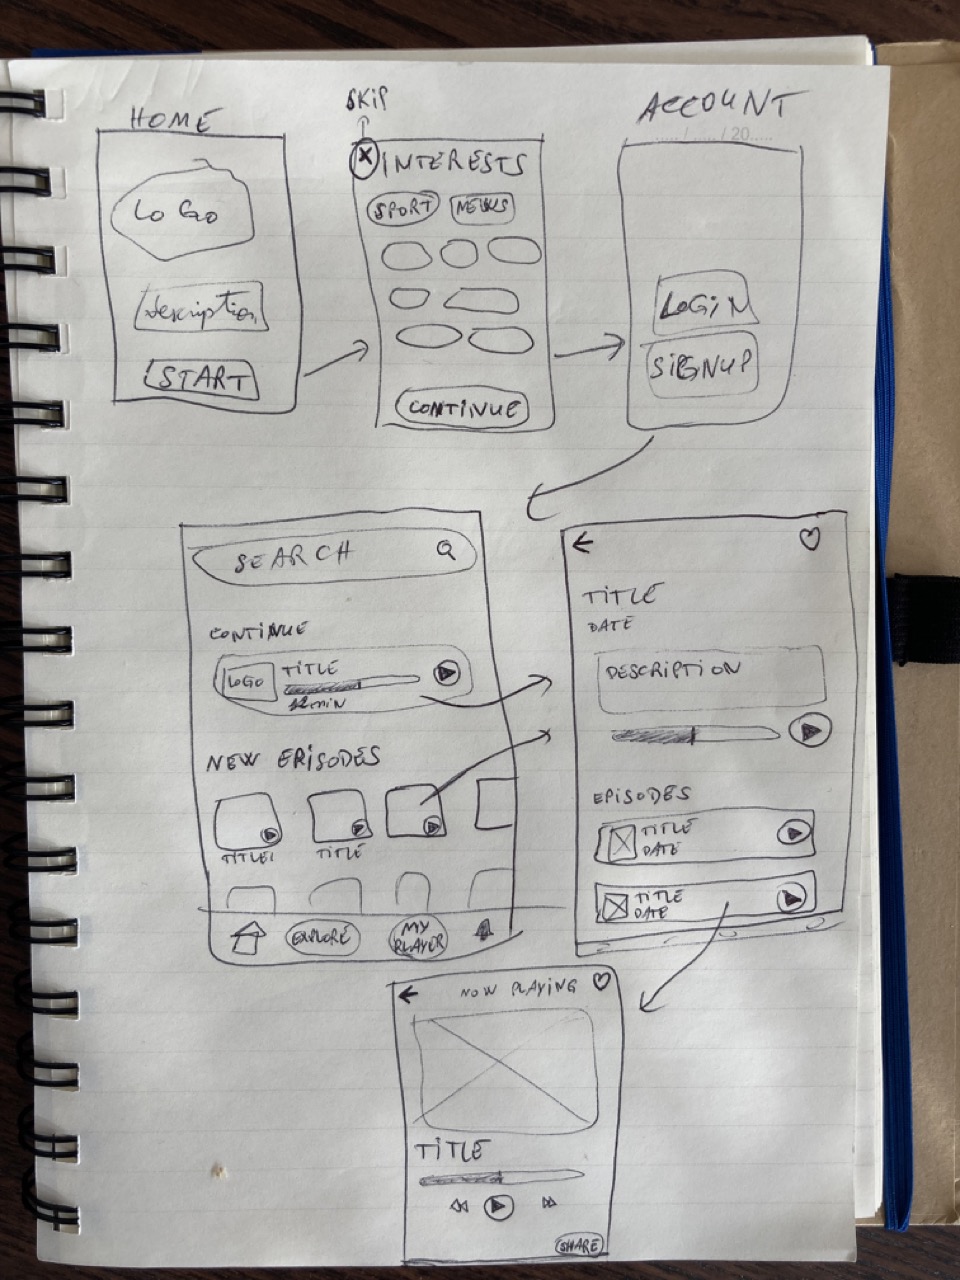 HOME
LOGO
Description
START
SKIP
X INTERESTS
SPORT NEWS
CONTINUE
ACCOUNT
..... / ..... / 20.....
LOGIN
SIGNUP
SEARCH
CONTINUE
LOGO TITLE
12min
NEW EPISODES
TITLE1 TITLE
EXPLORE MY PLAYER
TITLE
DATE
DESCRIPTION
EPISODES
TITLE
DATE
TITLE
DATE
NOW PLAYING
TITLE
SHARE